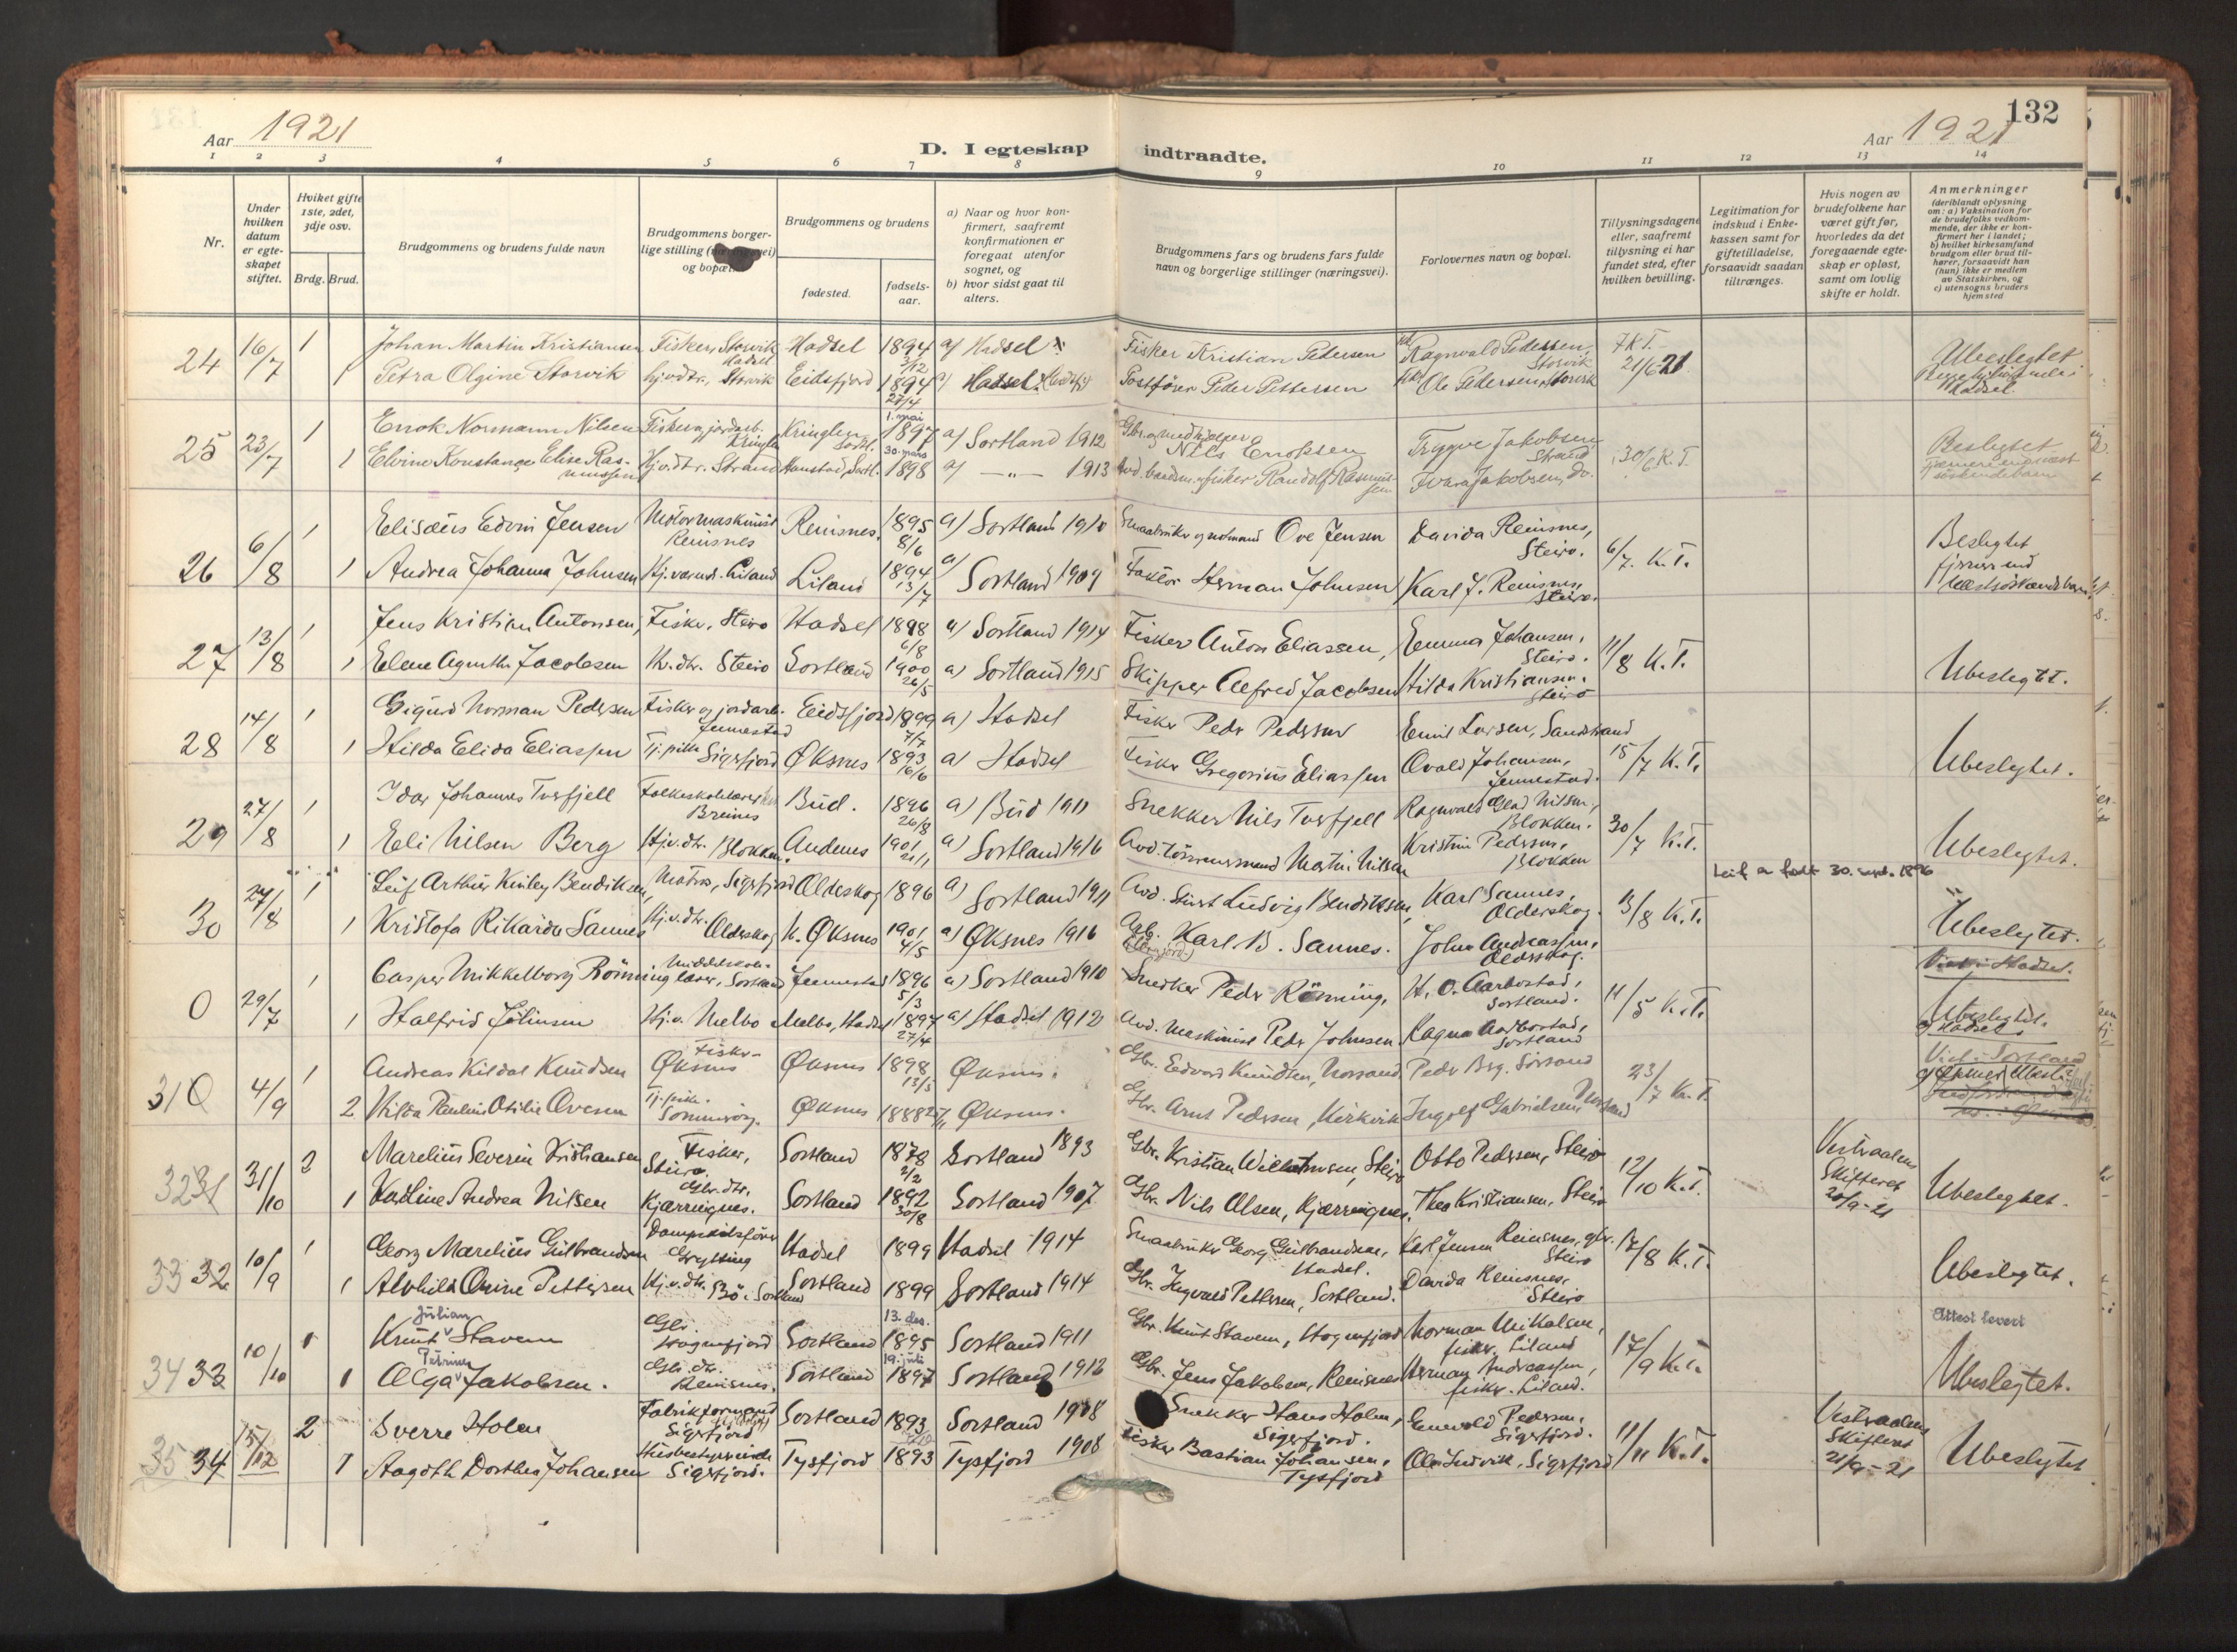 Aar 1921
D. I egteskap indtraadte.
Aar 1921
132
1 2 3 4 5 6 7 8 9 10 11 12 13 14
Nr.
Under hvilken datum er egteskapet stiftet.
Hviket gifte 1ste, 2det, 3dje osv.
Brdg. Brud.
Brudgommens og brudens fulde navn
Brudgommens borgerlige stilling (næringsvei) og bopæl.
Brudgommens og brudens
fødested.
fødselsaar.
a) Naar og hvor konfirmert, saafremt konfirmationen er foregaat utenfor sognet, og
b) hvor sidst gaat til alters.
Brudgommens fars og brudens fars fulde navn og borgerlige stillinger (næringsvei).
Forlovernes navn og bopæl.
Tillysningsdagene eller, saafremt tillysning ei har fundet sted, efter hvilken bevilling.
Legitimation for indskud i Enkekassen samt for giftetilladelse, forsaavidt saadan tiltrænges.
Hvis nogen av brudefolkene har været gift før, hvorledes da det foregaaende egteskap er opløst, samt om lovlig skifte er holdt.
Anmerkninger (deriblandt oplysning om: a) Vaksination for de brudefolks vedkommende, der ikke er konfirmert her i landet; b) hvilket kirkesamfund brudgom eller brud tilhører, forsaavidt han (hun) ikke er medlem av Statskirken, og c) utensogns bruders hjemsted
24 16/7 1 Johan Martin Kristiansen Fisker, Storvik Hadsel Hadsel 1894 a) Hadsel Fisker Kristian Pedersen Ragnvald Pedersen, Storvik 7 K.T. Ubeslegtet
1 Petra Olgine Storvik hj.v.dtr., Storvik Eidsfjord 1894 27/4 a) Hadsel Postfører Peder Pettersen Ole Pedersen, Storvik 21/6 21 Hadsel
25 23/7 1 Enok Normann Nilsen Fisker og jordarb. Kringlen Kringlen Sortl. 1. mai 1897 a) Sortland 1912 Gbr. og medhjælper Nils Enoksen Trygve Jakobsen Strand 30/6 K.T. Beslegtet
1 Elvine Konstanse Elise Rasmussen Hj.v.dtr. Strand Hanstad, Sortl. 30. mars 1898 a) —"— 1913 Avd. baadsm. og fisker Randolf Rasmussen Ivar Jakobsen, Do. fjernere end næst søskendebarn
26 6/8 1 Elisæus Edvin Jensen Motormaskinist Reinsnes Reinsnes. 1895 8/6 a) Sortland 1910 Smaabruker og notmand Ove Jensen Davida Reinsnes, Steiro. 6/7. K.T. Beslegtet
1 Andrea Johanna Johnsen Hj.værende. Liland Liland 1894 13/7 a) Sortland 1909 Faktor Herman Johnsen Karl J. Reinsnes, Steiro. fjernere end
27 13/8 1 Jens Kristian Antonsen, Fisker. Steiro Hadsel 1898 6/8 a) Sortland 1914 Fisker Anton Eliassen, Emma Johansen, Steiro. 11/8 K.T.
1 Elene Agnethe Jacobsen Hv.dtr. Steiro Sortland 1900 26/5 a) Sortland 1915 Skipper Alfred Jacobsen Hilda Kristiansen. Steiro Ubeslegtet.
28 14/8 1 Sigurd Norman Pedersen Fisker og jordarb. Jennestad Eidsfjord 1899 7/7 a) Hadsel Fisker Peder Pedersen Emil Larsen, Sandstrand
1 Hilda Elida Eliassen Tj.pike Sigerfjord Øksnes 1893 6/6 a) Hadsel Fisker Gregorius Eliassen Ovald Johansen, Jennestad. 15/7 K.T. Ubeslegtet.
29 27/8 1 Idar Johannes Tverfjell Folkeskolelærer Breines Bud. 1896 26/8 a) Bud 1911 Snekker Nils Tverfjell Ragnvald Glad Nilsen, Blokken. 30/7 K.T.
1 Eli Nilsen Berg Hj.v.dtr. Blokken. Andenes 1901 21/1 a) Sortland 1916 Avd. Lensmand Martin Nilsen Kristine Pedersen, Blokken Ubeslegtet.
Leif er født 30. sept. 1896
30 27/8 1 Leif Arthur Kinley Bendiksen, Matros, Sigerfjord Olderskog 1896 a) Sortland 1911 Avd. Stuert Ludvig Bendiksen Karl Sannes, Olderskog. 13/8 K.T.
1 Kristofa Rikarda Sannes Hj.v.dtr. Olderskog h. Øksnes 1901 4/5 a) Øksnes 1916 Gbr. Karl B. Sannes. John Andreassen, Olderskog. Ubeslegtet.
0 29/7 1 Casper Mikkelborg Rönning Middelskolelærer, Sortland Jennestad 1896 5/3 a) Sortland 1910 Snedker Peder Rönning, H. O. Aarbostad, Sortland. 11/5 K.T. Viet i Hadsel.
1 Halfrid Johnsen Hj.v. Melbo Melbo, Hadsel 1897 27/4 a) Hadsel 1912 Avd. Maskinist Peder Johnsen Ragna Aarbostad, Sortland Ubeslegtet. Hadsel.
31 0 4/9 1 Andreas Kildal Knudsen Fisker Øksnes Øksnes 1898 13/3 Øksnes. Gbr. Edvard Knudsen, Norsand Peder Brg. Sörsand 23/7 K.T. Viet i Sortland
2 Hilda Pauline Otilie Ovesen Tj.pike Øksnes 1888 Øksnes. Gbr. Arnt Pedersen, Kirkvik Ingolf Gabrielsen, Norsand
32 31 31/10 2 Marelius Severin Kristiansen Fisker, Steiro Sortland 1878 2/2 Sortland 1893 Gbr. Kristian Wilhelmsen, Steiro Otto Pedersen, Steiro 12/10 K.T. Vestraalens Skifteret 20/9-21
1 Karline Andrea Nilsen Gbr.dtr. Kjærringnes. Sortland 1892 30/8 Sortland 1907 Gbr. Nils Olsen, Kjærringnes. Thea Kristiansen, Steiro Ubeslegtet.
33 32 10/9 1 Georg Marelius Gulbrandsen Dampskibsfører Grytting Hadsel 1899 Hadsel 1914 Smaabruker Georg Gulbrandsen, Hadsel. Karl Jensen Reinsnes, gbr. Steiro 17/8 K.T.
1 Alvhild Orine Pettersen Hj.v.dtr. Bö i Sortland Sortland 1899 Sortland 1914 Gbr. Ingvald Pettersen, Sortland. Davida Reinsnes, Steiro Ubeslegtet.
34 33 10/10 1 Knut Julian Stavem Gbr. Hognfjord Sortland 13. des. 1895 Sortland 1911 Gbr. Knut Stavem, Hognfjord Norman Mikalsen, fisker. Liland 17/9 K.T. Attest levert
1 Olga Petrine Jakobsen. Gbr. dtr. Reinsnes. Sortland 19. juli 1897 Sortland 1912 Gbr. Jens Jakobsen, Reinsnes Herman Andreassen, fisker. Liland. Ubeslegtet.
35 34 15/12 2 Sverre Holm Fabrikformand Sigerfjord Sortland 1893 Sortland 1908 Snekker Hans Holm, Sigerfjord. Enevold Pedersen, Sigerfjord. 11/11 K.T. Vestraalens Skifteret 21/9-21
1 Aagoth Dorthea Johansen Husbestyrerinde Sigerfjord. Tysfjord 1893 Tysfjord 1908 Fisker Bastian Johansen, Tysfjord Ole Ludvik, Sigerfjord Ubeslegtet